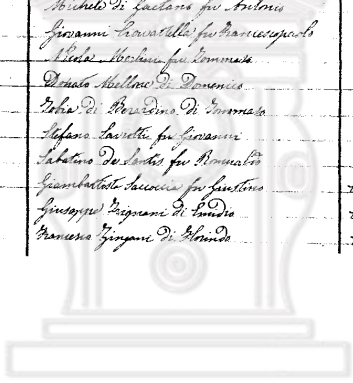 Michele di Gaetano fu Antonio
Giovanni fu Francescopaolo
Nicola fu Tommaso
Donato Mellone di Domenico
Tobia di Berardino di Tommaso
Stefano fu Giovanni
Sabatino de Santis fu Romualdo
Giambattista Saccoccia fu Giustino
Giuseppe di Emidio
Francesco Zinzani di Florindo